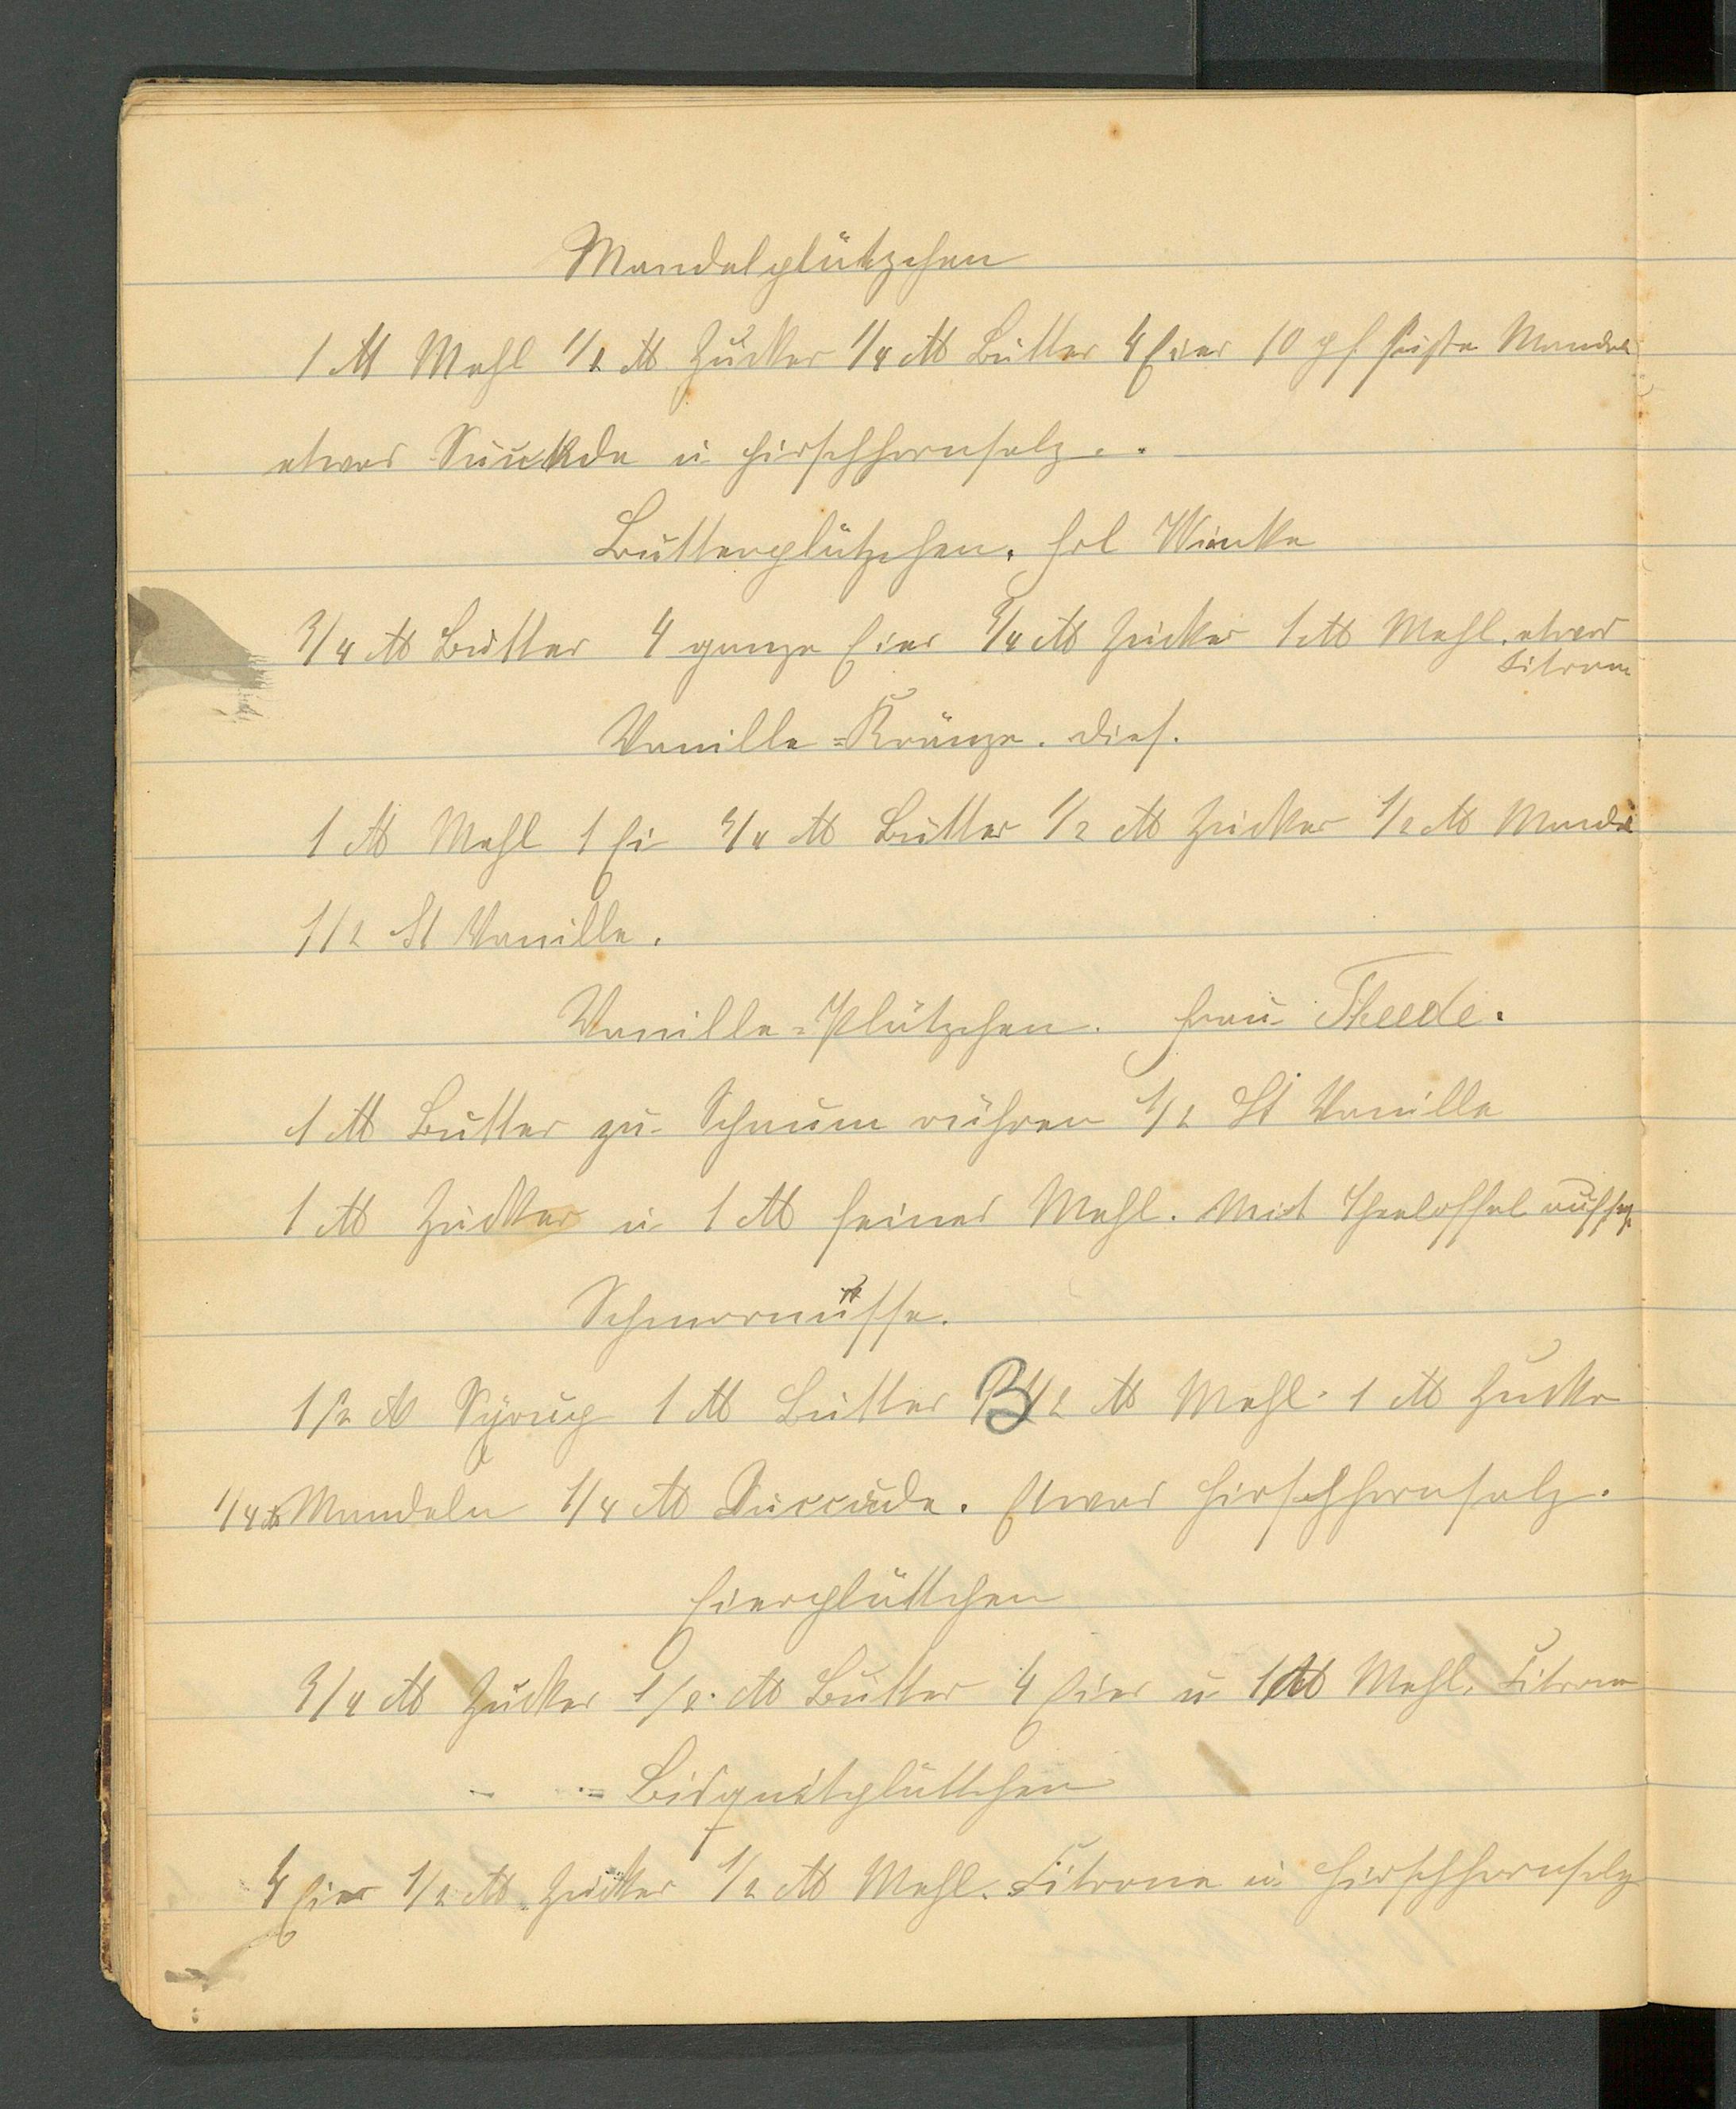 Mandelplätzchen
1 ℔ Mehl 1/2 ℔ Zucker 1/4 ℔ Butter 4 Eier 10 pf süße Mandel
etwas Suckade u Hirschhornsalz.
Butterplätzchen. Frl Wincke
3/4 ℔ Butter 4 ganze Eier 3/4 ℔ Zucker 1 ℔ Mehl. etwas
Citrone
Vanille=Kränze. dies.
1 ℔ Mehl 1 Ei 3/4 ℔ Butter 1/2 ℔ Zucker 1/2 ℔ Mandel
1/2 St Vanille.
Vanille=Plätzchen. Frau Theede.
1 ℔ Butter zu Schaum rühren 1/2 St Vanille
1 ℔ Zucker u 1 ℔ feines Mehl. Mit Theeloffel aufsetz
Schmornüsse.
1/2 ℔ Syrup 1 ℔ Butter 3 1/2 ℔ Mehl 1 ℔ Zucker
1/4 ℔ Mandeln 1/4 ℔ Succade. Etwas Hirschhornsalz.
Eierplättchen
3/4 ℔ Zucker 1/2 ℔ Butter 4 Eier u 1 ℔ Mehl. Citrone
Bisquitplättchen
4 Eier 1/2 ℔ Zucker 1/2 ℔ Mehl. Citrone u Hirschhornsalz